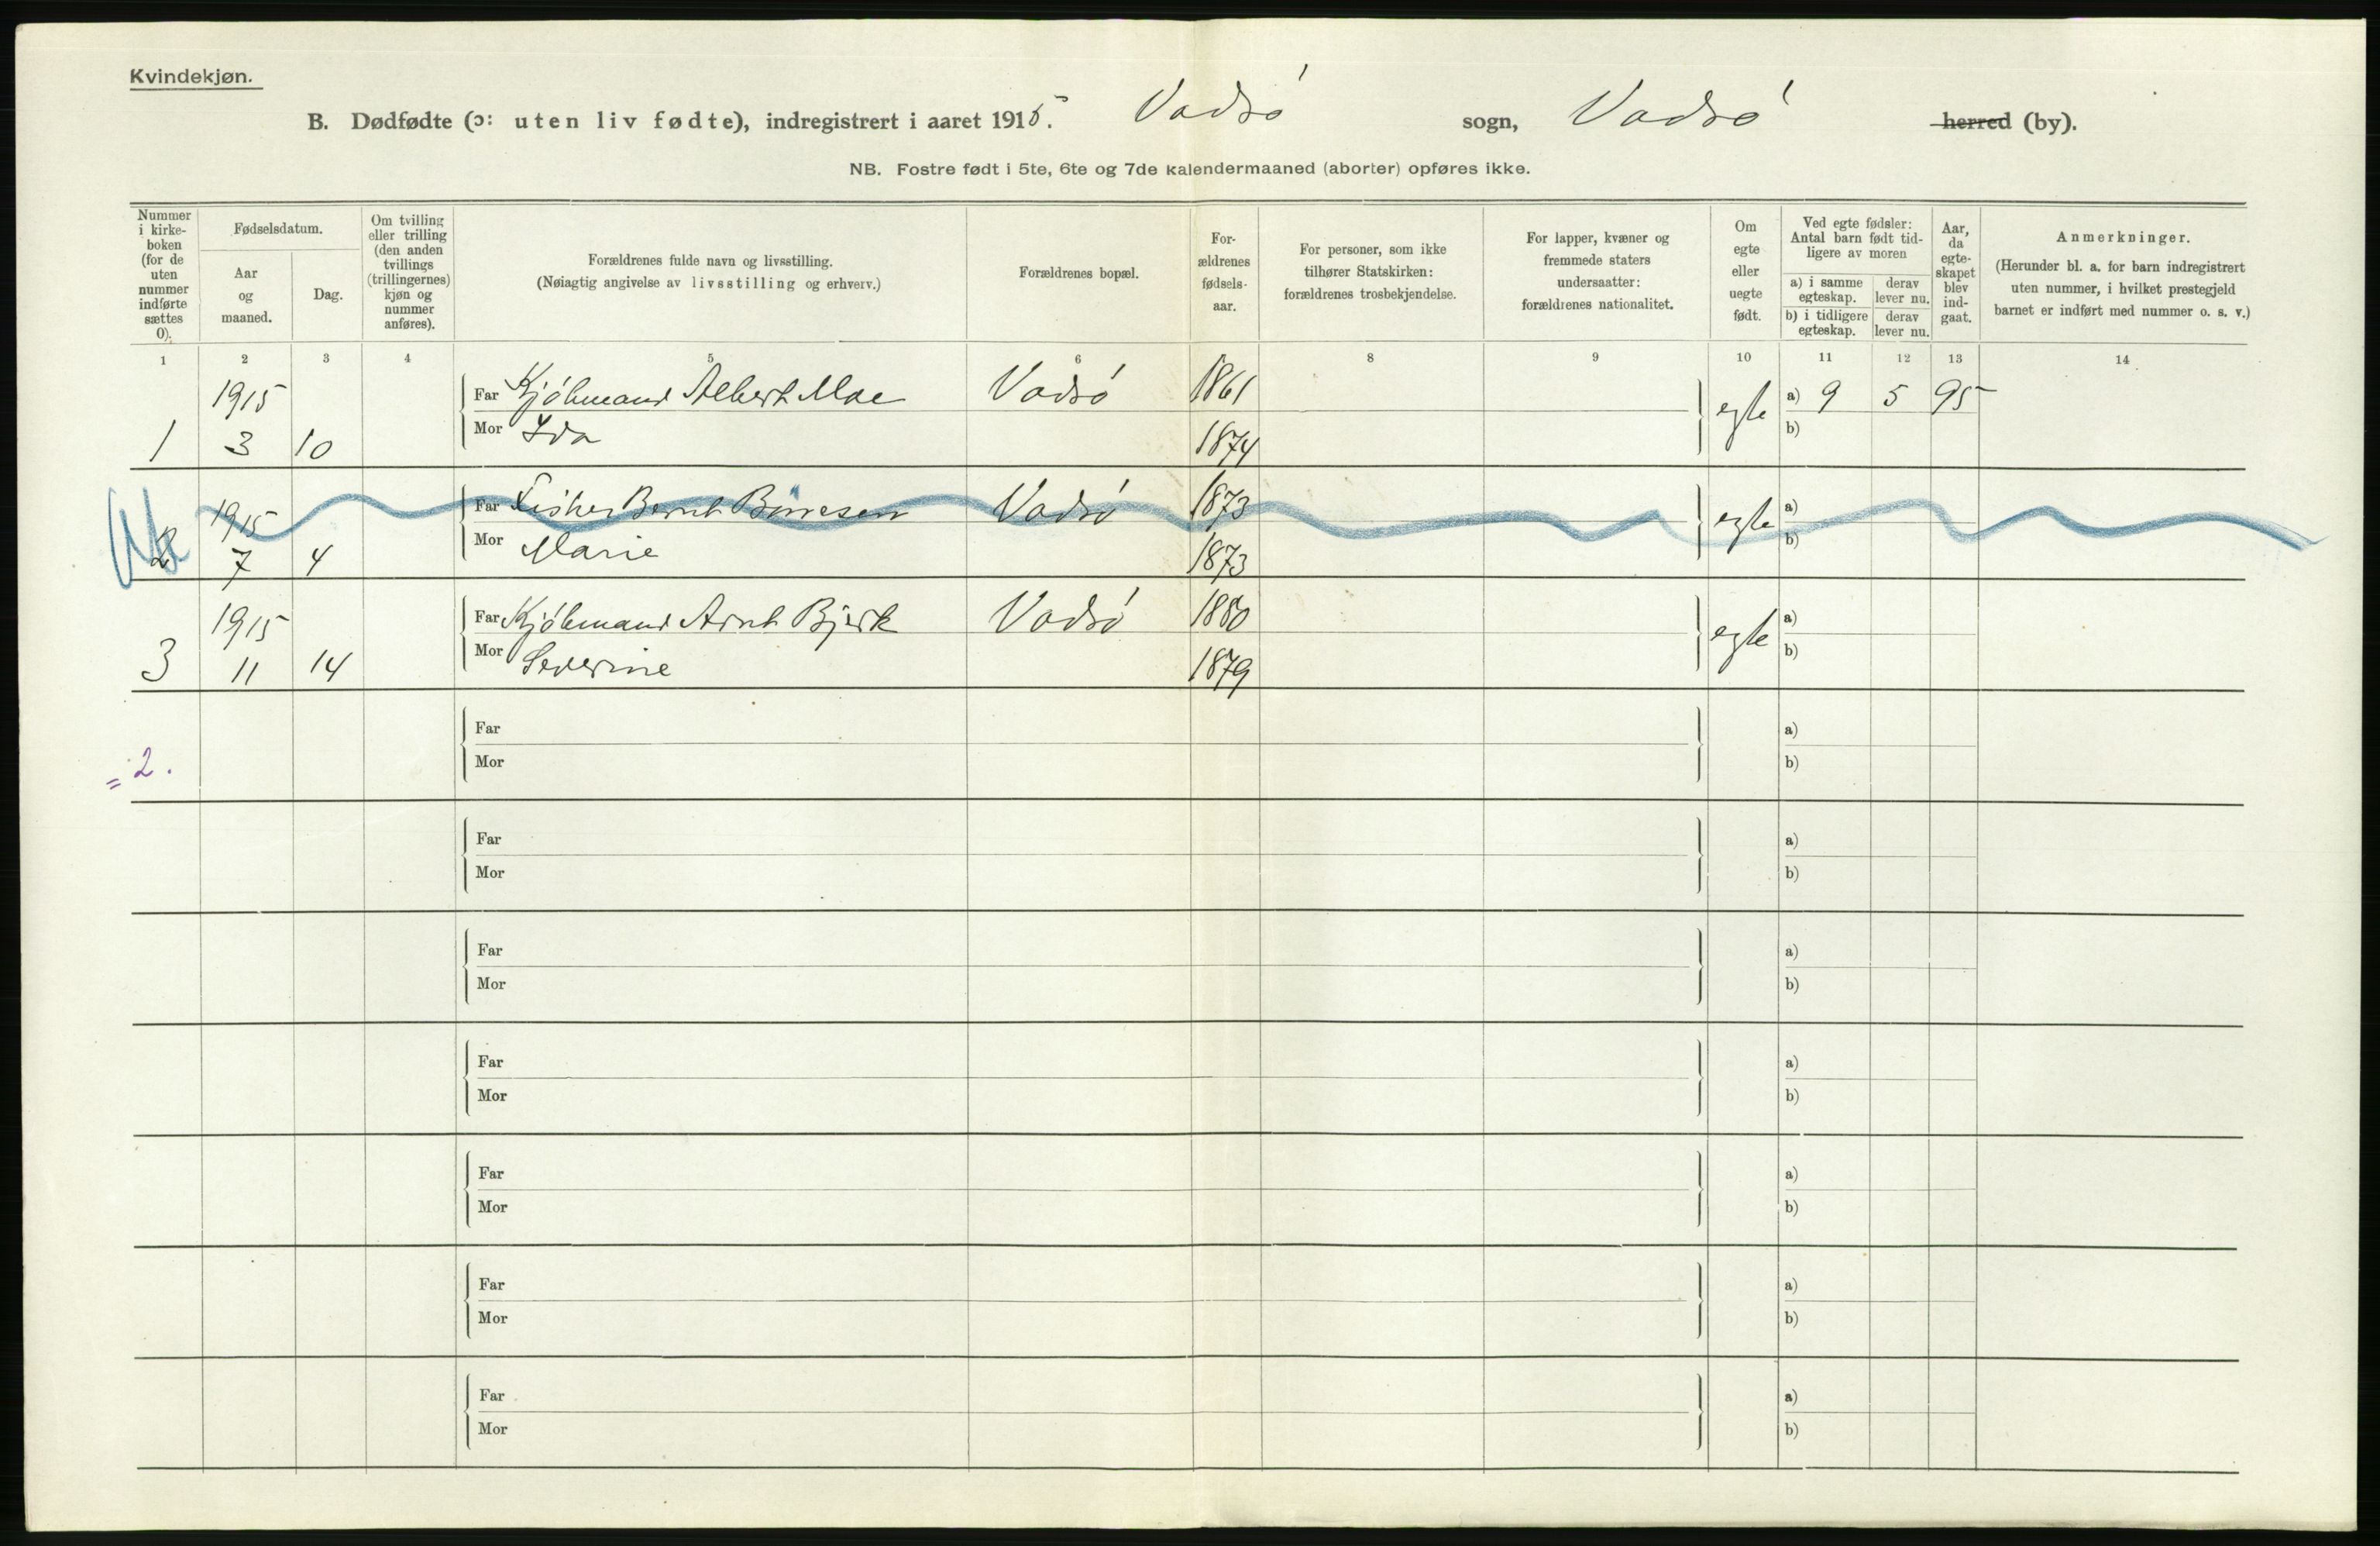 Kvindekjøn.
B. Dødfødte (ɔ: uten liv fødte), indregistrert i aaret 1915. Vadsø sogn, Vadsø herred (by).
NB. Fostre født i 5te, 6te og 7de kalendermaaned (aborter) opføres ikke.
Nummer i kirke-
boken
(for de
uten
nummer
indførte
sættes
0).
Fødselsdatum.
Aar
og
maaned.
Dag.
Om tvilling
eller trilling
(den anden
tvillings
(trillingernes)
kjøn og
nummer
anføres).
Forældrenes fulde navn og livsstilling.
(Nøiagtig angivelse av livsstilling og erhverv.)
Forældrenes bopæl.
For-
ældrenes
fødsels-
aar.
For personer, som ikke
tilhører Statskirken:
forældrenes trosbekjendelse.
For lapper, kvæner og
fremmede staters
undersaatter:
forældrenes nationalitet.
Om
egte
eller
uegte
født.
Ved egte fødsler:
Antal barn født tid-
ligere av moren
a) i samme
egteskap.
derav
lever nu.
b) i tidligere
egteskap.
derav
lever nu.
Aar,
da
egte-
skapet
blev
ind-
gaat.
Anmerkninger.
(Herunder bl. a. for barn indregistrert
uten nummer, i hvilket prestegjeld
barnet er indført med nummer o. s. v.)
1 2 3 4 5 6 7 8 9 10 11 12 13 14
1915 Far Kjøbmand Albert Moe Vadsø 1861 egte a) 9 5 95
1 3 10 Mor Ida 1874 b)
1915 Far Fisker Bernt Vadsø 1873 egte a)
2 7 4 Mor Marie 1873 b)
1915 Far Kjøbmand Arnt Bjerk Vadsø 1880 egte a)
3 11 14 Mor Severine 1879 b)
Far a)
= 2. Mor b)
Far a)
Mor b)
Far a)
Mor b)
Far a)
Mor b)
Far a)
Mor b)
Far a)
Mor b)
Far a)
Mor b)